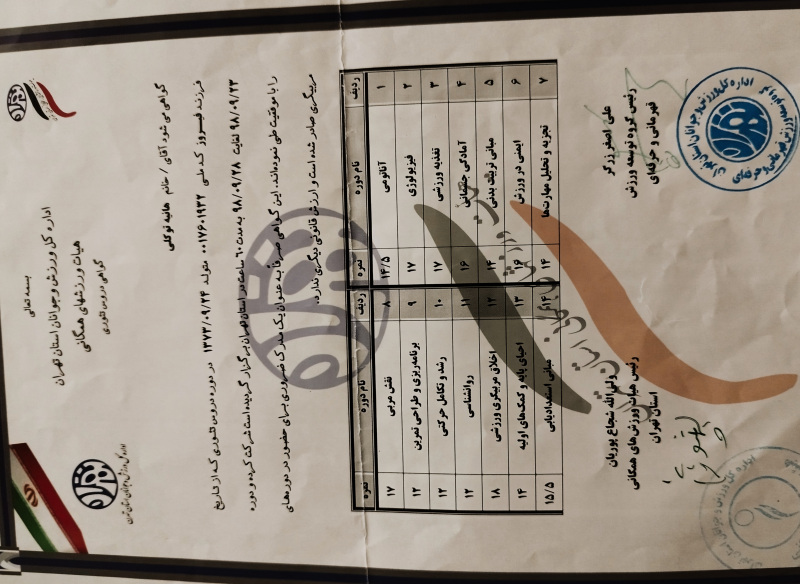 بسمه تعالی
اداره کل ورزش و جوانان استان تهران
هیات ورزشهای همگانی
گواهی دروس تئوری
گواهی می شود آقای / خانم هانیه توکلی
فرزند فیروز کد ملی ۰۰۱۷۶۰۱۹۳۲ متولد ۱۳۷۳/۰۹/۲۴ در دوره دروس تئوری که از تاریخ
۹۸/۰۹/۲۳ لغایت ۹۸/۰۹/۲۸ به مدت ۶۰ ساعت در استان تهران برگزار گردیده است شرکت کرده و دوره
را با موفقیت طی نموده‌اند. این گواهی صرفاً به عنوان یک مدرک ضروری برای حضور در دوره‌های
مربیگری صادر شده است و ارزش قانونی دیگری ندارد.
ردیف نام دوره نمره ردیف نام دوره نمره
۱ آناتومی ۱۴/۵ ۸ نقش مربی ۱۷
۲ فیزیولوژی ۱۷ ۹ برنامه‌ریزی و طراحی تمرین ۱۲
۳ تغذیه ورزشی ۱۷ ۱۰ رشد و تکامل حرکتی ۱۲
۴ آمادگی جسمانی ۱۶ ۱۱ روانشناسی ۱۲
۵ مبانی تربیت بدنی ۱۴ ۱۲ اخلاق مربیگری ورزشی ۱۸
۶ ایمنی در ورزش ۱۶ ۱۳ احیای پایه و کمک‌های اولیه ۱۴
۷ تجزیه و تحلیل مهارت‌ها ۱۴ ۱۴ مبانی استعدادیابی ۱۵/۵
علی اصغر زرگر
رئیس گروه توسعه ورزش
قهرمانی و حرفه‌ای
ولی الله شجاع پوریان
رئیس هیات ورزش‌های همگانی
استان تهران
اداره کل ورزش و جوانان استان تهران